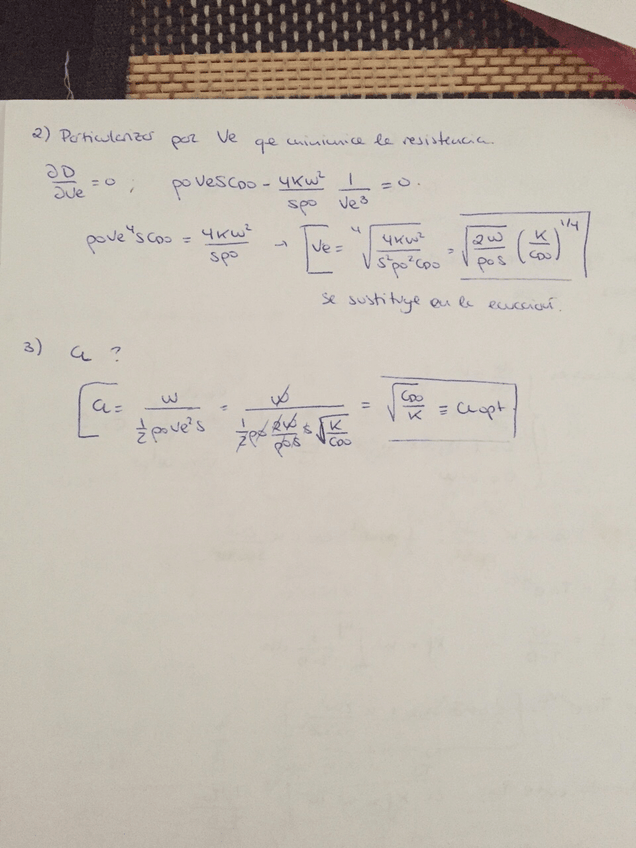 2) Particularizar por Ve qe minimice la resistencia.
∂D/∂Ve = 0 ; ρ0 Ve S CD0 - 4KW²/Sρ0 1/Ve³ = 0.
ρ0 Ve⁴ S CD0 = 4KW²/Sρ0 → [Ve = ⁴√(4KW²/S²ρ0²CD0) = √(2W/ρ0S) (K/CD0)^1/4]
se sustituye en la ecuación.
3) CL ?
[CL = W/(½ρ0Ve²S) = W/(½ρ0 2W/ρ0S S √(K/CD0)) = √(CD0/K) ≡ CLopt]